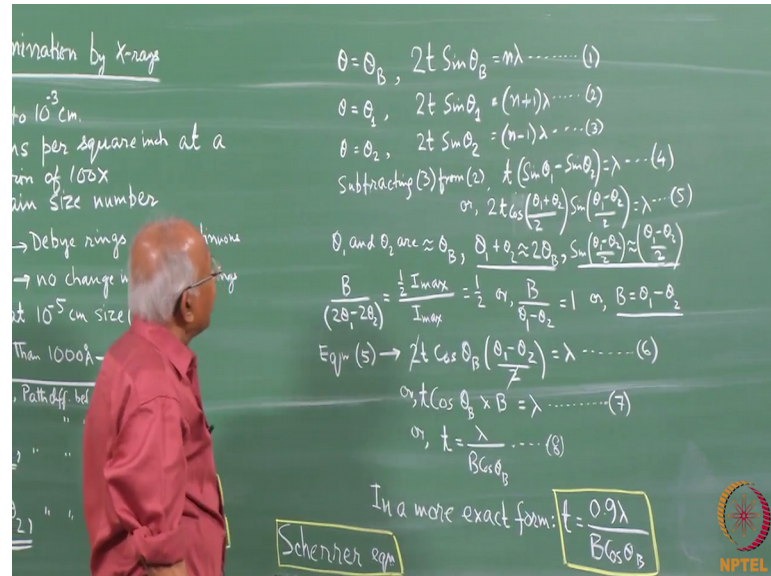 mination by X-rays
to 10⁻³ cm.
ns per square inch at a
of 100X
ain size number
→ Debye rings
→ no change
at 10⁻⁵ cm size
Than 1000Å
Path diff. be
" "
" "
θ₂) " "
θ = θ_B , 2t Sin θ_B = nλ ...... (1)
θ = θ₁ , 2t Sin θ₁ = (n+1)λ ..... (2)
θ = θ₂ , 2t Sin θ₂ = (n-1)λ ... (3)
Subtracting (3) from (2), t (Sin θ₁ - Sin θ₂) = λ ... (4)
or, 2t cos((θ₁+θ₂)/2) Sin((θ₁-θ₂)/2) = λ .... (5)
θ₁ and θ₂ are ≈ θ_B, θ₁ + θ₂ ≈ 2θ_B, Sin((θ₁-θ₂)/2) ≈ ((θ₁-θ₂)/2)
B/(2θ₁-2θ₂) = (½ I max)/(I max) = ½ or, B/(θ₁-θ₂) = 1 or, B = θ₁ - θ₂
Eqn (5) → 2t Cos θ_B ((θ₁-θ₂)/2) = λ ...... (6)
or, t Cos θ_B × B = λ ......... (7)
or, t = λ/(B Cos θ_B) .... (8)
In a more exact form: t = 0.9λ/(B Cos θ_B)
Scherrer eqn
NPTEL